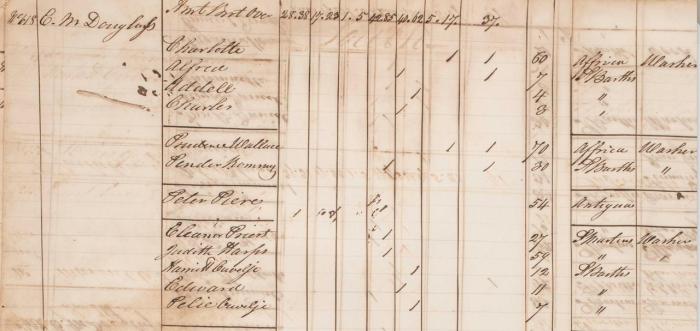 No 318 C. M. Douglass Amt Brot Over 28. 38 19. 23 1. 5 42. 85 41. 62 5. 17. 37.
Charlotte 1 1 60 Africa Washer
Alfred 1 1 7 St Barths
Addell 1 4 "
Charles 1 3 "
Prudence Wallace 1 1 70 Africa Washer
Pender 1 1 30 St Barths "
Peter Piere 1 54 Antigua
Eleanor Priest 1 27 St Martins Washer
Judith 1 59 " "
Harriet 1 12 St Barths
Edward 1 11 "
Pelie 1 7 "